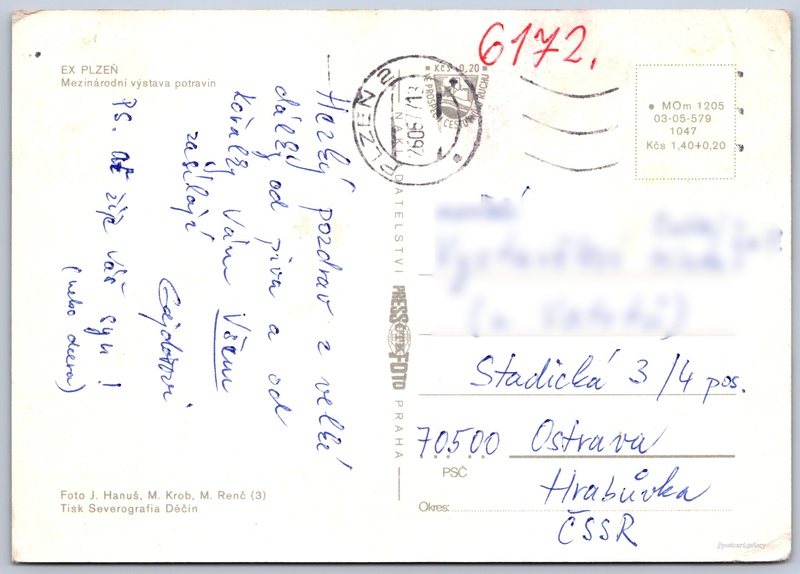 EX PLZEŇ
Mezinárodní výstava potravin
Hezký pozdrav z velké
dálky od piva a od
kořalky Vám Všem
zasílají
Gajdošovi
Ps. Ať žije váš syn!
(nebo dcera)
Foto J. Hanuš, M. Krob, M. Renč (3)
Tisk Severografia Děčín
NAKLADATELSTVÍ
PRESSFOTO
PRAHA
PLZEŇ 2
Kčs 0,20
VE PROSPĚCH
6172.
MOm 1205
03-05-579
1047
Kčs 1,40+0,20
Stadická 3/4 pos.
70500 Ostrava
PSČ
Hrabůvka
Okres:
ČSSR